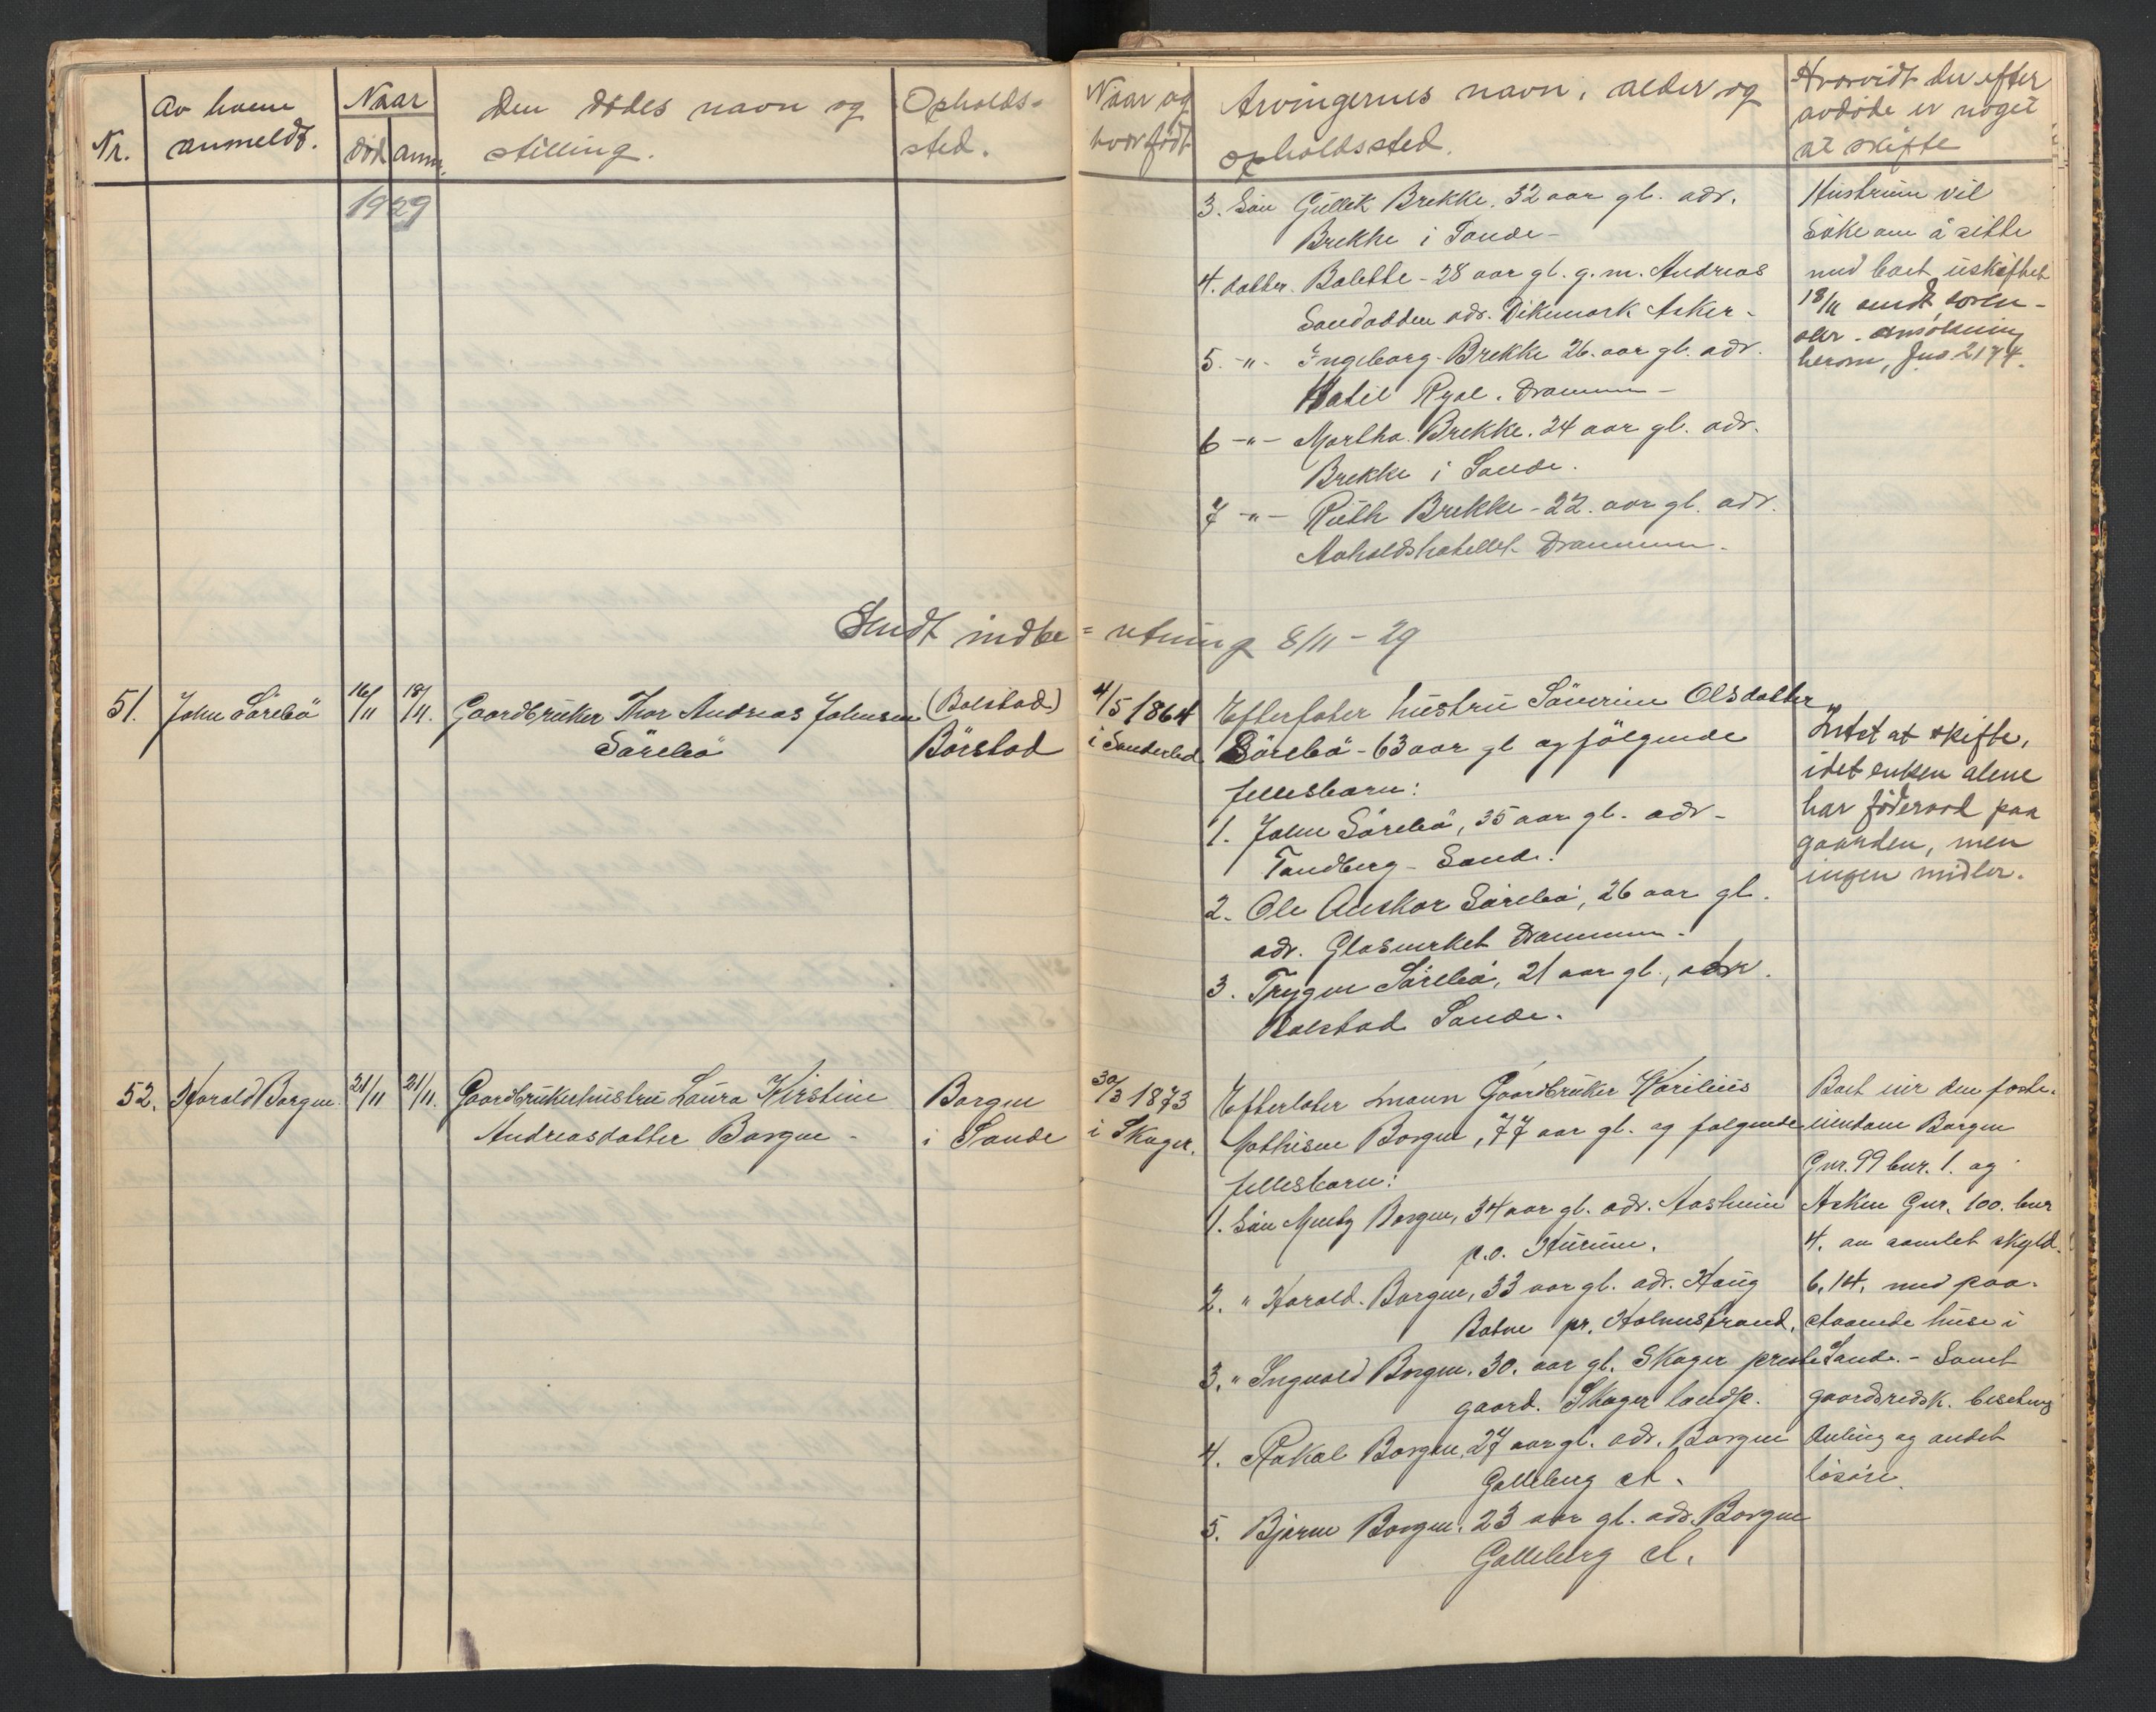 Nr.
Av hvem
anmeldt.
Naar
död anm.
Den dödes navn og
stilling.
Opholds-
sted.
Naar og
hvor födt
Arvingernes navn, alder og
opholdssted.
Hvorvidt der efter
avdöde er noget
at skifte
1929
3. Sön Gullik Brekke. 32 aar gl. adr.
Brekke i Sande -
4. datter. Bolette - 28 aar gl. g. m. Andreas
Sandodden adr. Dikemark Asker -
5. -"- Ingeborg Brekke 26. aar gl. adr.
Hotel Ryal. Drammen -
6 -"- Martha. Brekke. 24 aar gl. adr.
Brekke i Sande.
7 -"- Ruth Brekke - 22. aar gl. adr.
Avholdshotellet Drammen -
Hustruen vil
söke om å sitte
med boet uskiftet
18/11 sendt soren-
skr. ansökning
herom, Jno. 2174.
Sendt indbe = retning 8/11 - 29
51.
John Sörebö
16/11
18/11.
Gaardbruker Thor Andreas Johnsen
Sörebö
(Bolstad)
Börstad
4/5 1864
i Sanderled
Efterlater hustru Söverine Olsdatter
Sörebö - 63 aar gl og fölgende
fellesbarn:
1. John Sörebö, 35 aar gl. adr -
Tandberg - Sande.
2. Ole Anskar Sörebö, 26 aar gl.
adr. Glasverket Drammen.
3. Trygve Sörebö, 21 aar gl., adr.
Bolstad Sande.
Intet at skifte,
idet enken alene
har föderaad paa
gaarden, men
ingen midler.
52.
Harald Borgen.
21/11
21/11.
Gaardbrukerhustru Laura Kirstine
Andreasdatter Borgen -
Borgen
i Sande
30/3 1873
i Skoger.
Efterlater mann Gaardbruker Karilius
Mathisen Borgen, 77 aar gl. og følgende
fellesbarn:
1. Sön Borgen, 34 aar gl. adr. Aasheim
p.o. Hurum.
2. " Harald. Borgen, 33 aar gl. adr. Haug
Botne pr. Holmestrand.
3. " Ingvald Borgen. 30. aar gl. Skoger preste
gaard. Skoger landsp.
4. Rakel Borgen, 27 aar gl. adr. Borgen
Galleberg st.
5. Bjarne Borgen, 23 aar gl. adr. Borgen
Galleberg st.
Boet eier den faste
eiendom Borgen
Gnr. 99 bnr. 1. og
Asken Gnr. 100. bnr
4. av samlet skyld.
6,14, med paa-
staaende huse i
Sande. - Samt
gaardsredsk. besetning
Avling og andet
lösöre.